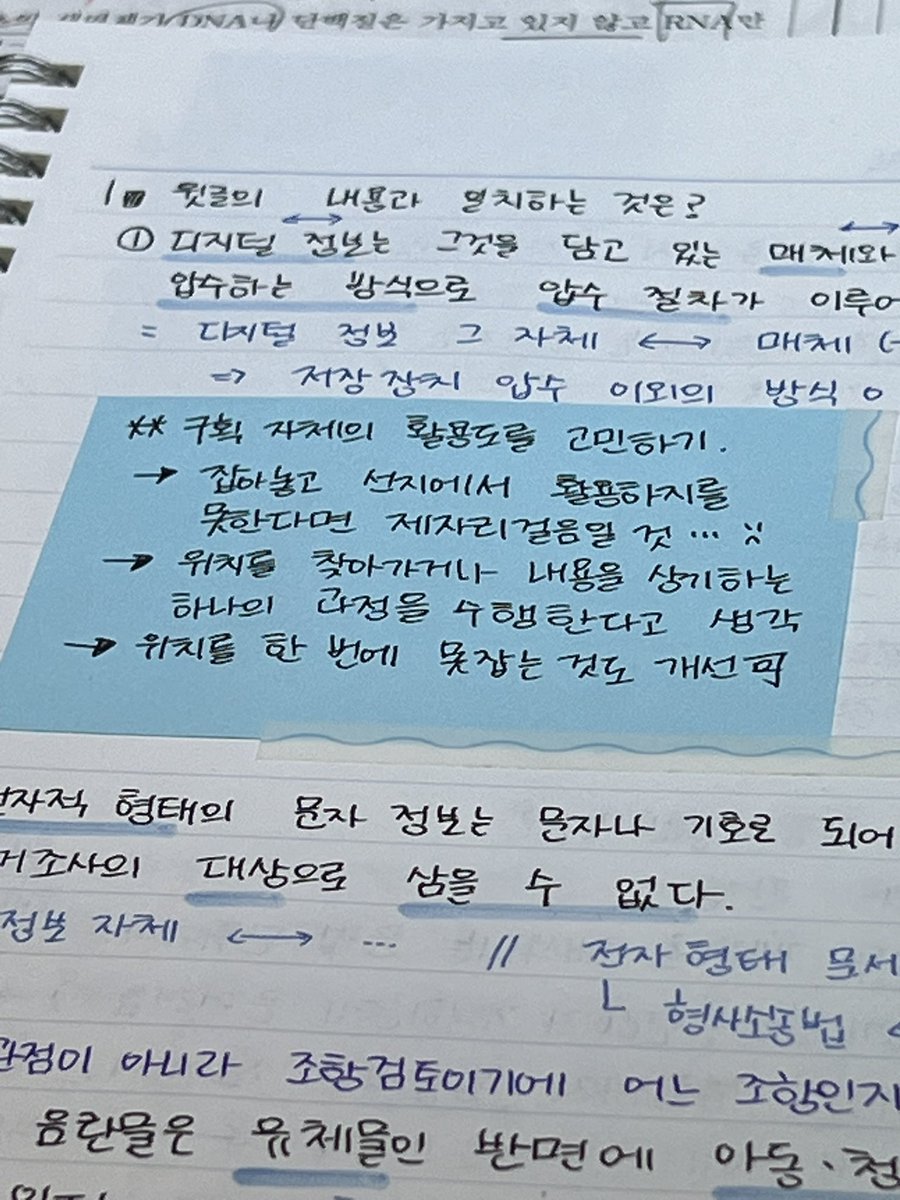 단백질은 가지고 있지 않고 RNA만
1 윗글의 내용과 일치하는 것은?
① 디지털 정보는 그것을 담고 있는 매체와
압수하는 방식으로 압수 절차가 이루어
= 디지털 정보 그 자체 ↔ 매체 (
⇒ 저장장치 압수 이외의 방식 o
** 구획 자체의 활용도를 고민하기.
→ 잡아놓고 선지에서 활용하지를
못한다면 제자리걸음일 것…
→ 위치를 찾아가거나 내용을 상기하는
하나의 과정을 수행한다고 생각
→ 위치를 한 번에 못잡는 것도 개선可
전자적 형태의 문자 정보는 문자나 기호로 되어
거조사의 대상으로 삼을 수 없다.
정보 자체 ↔ … // 전자형태 문서
ㄴ 형사소송법
관점이 아니라 조합검토이기에 어느 조합인지
음란물은 유체물인 반면에 아동·청